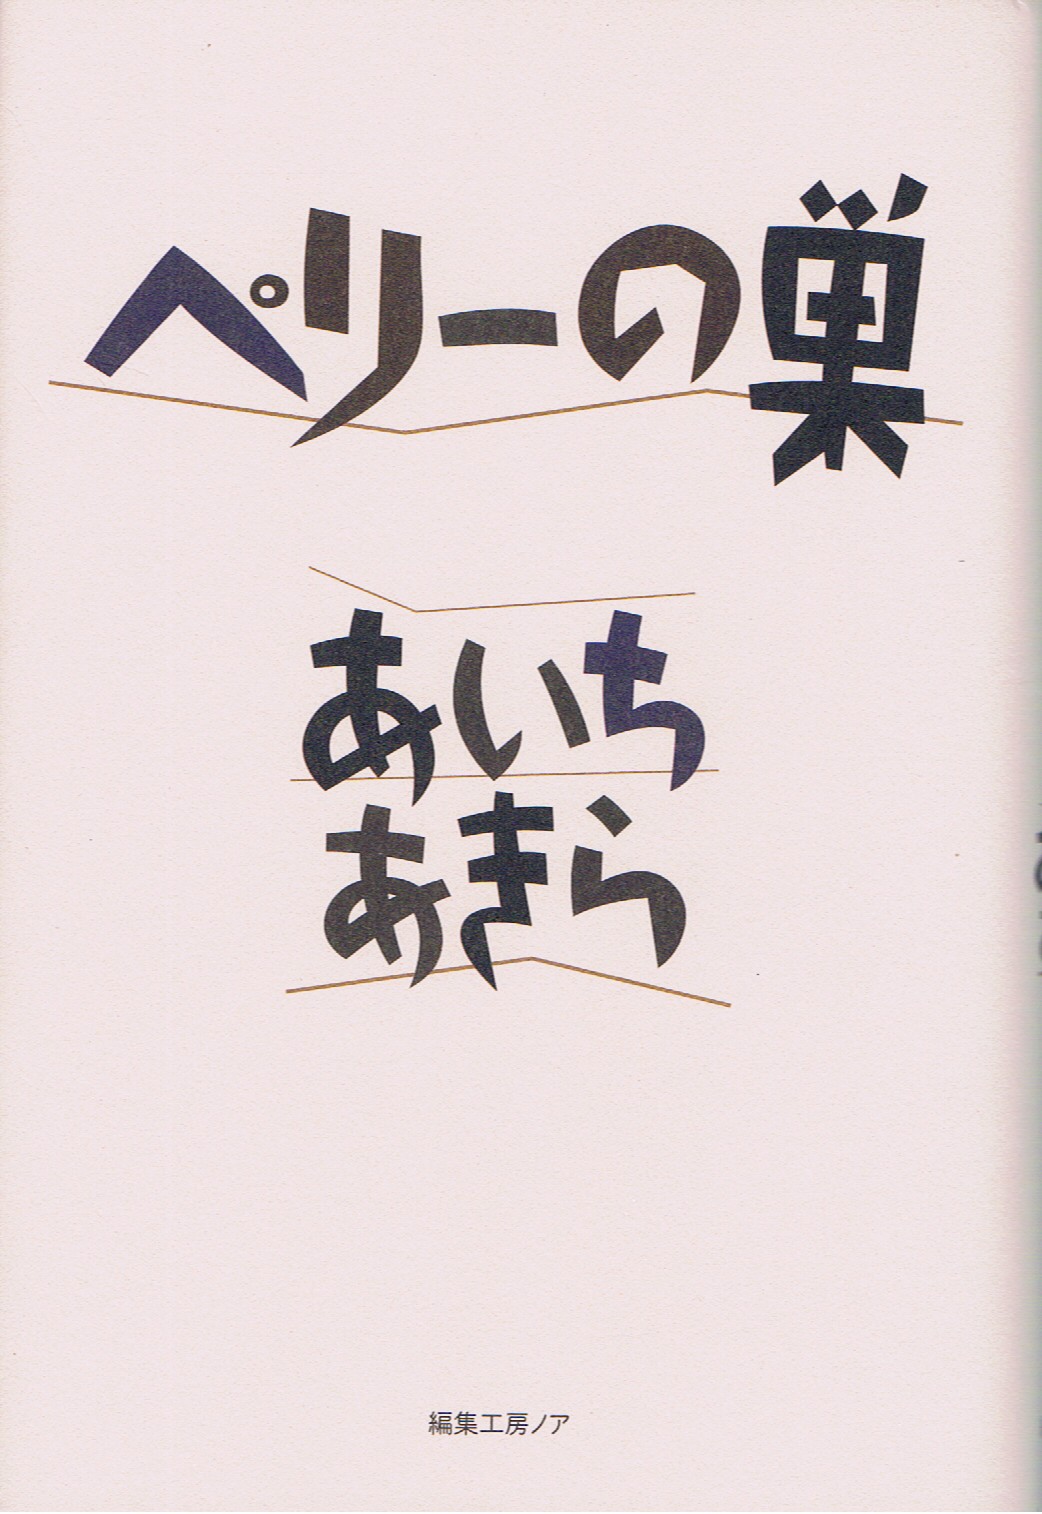 ペリーの巣
あいち
あきら
編集工房ノア